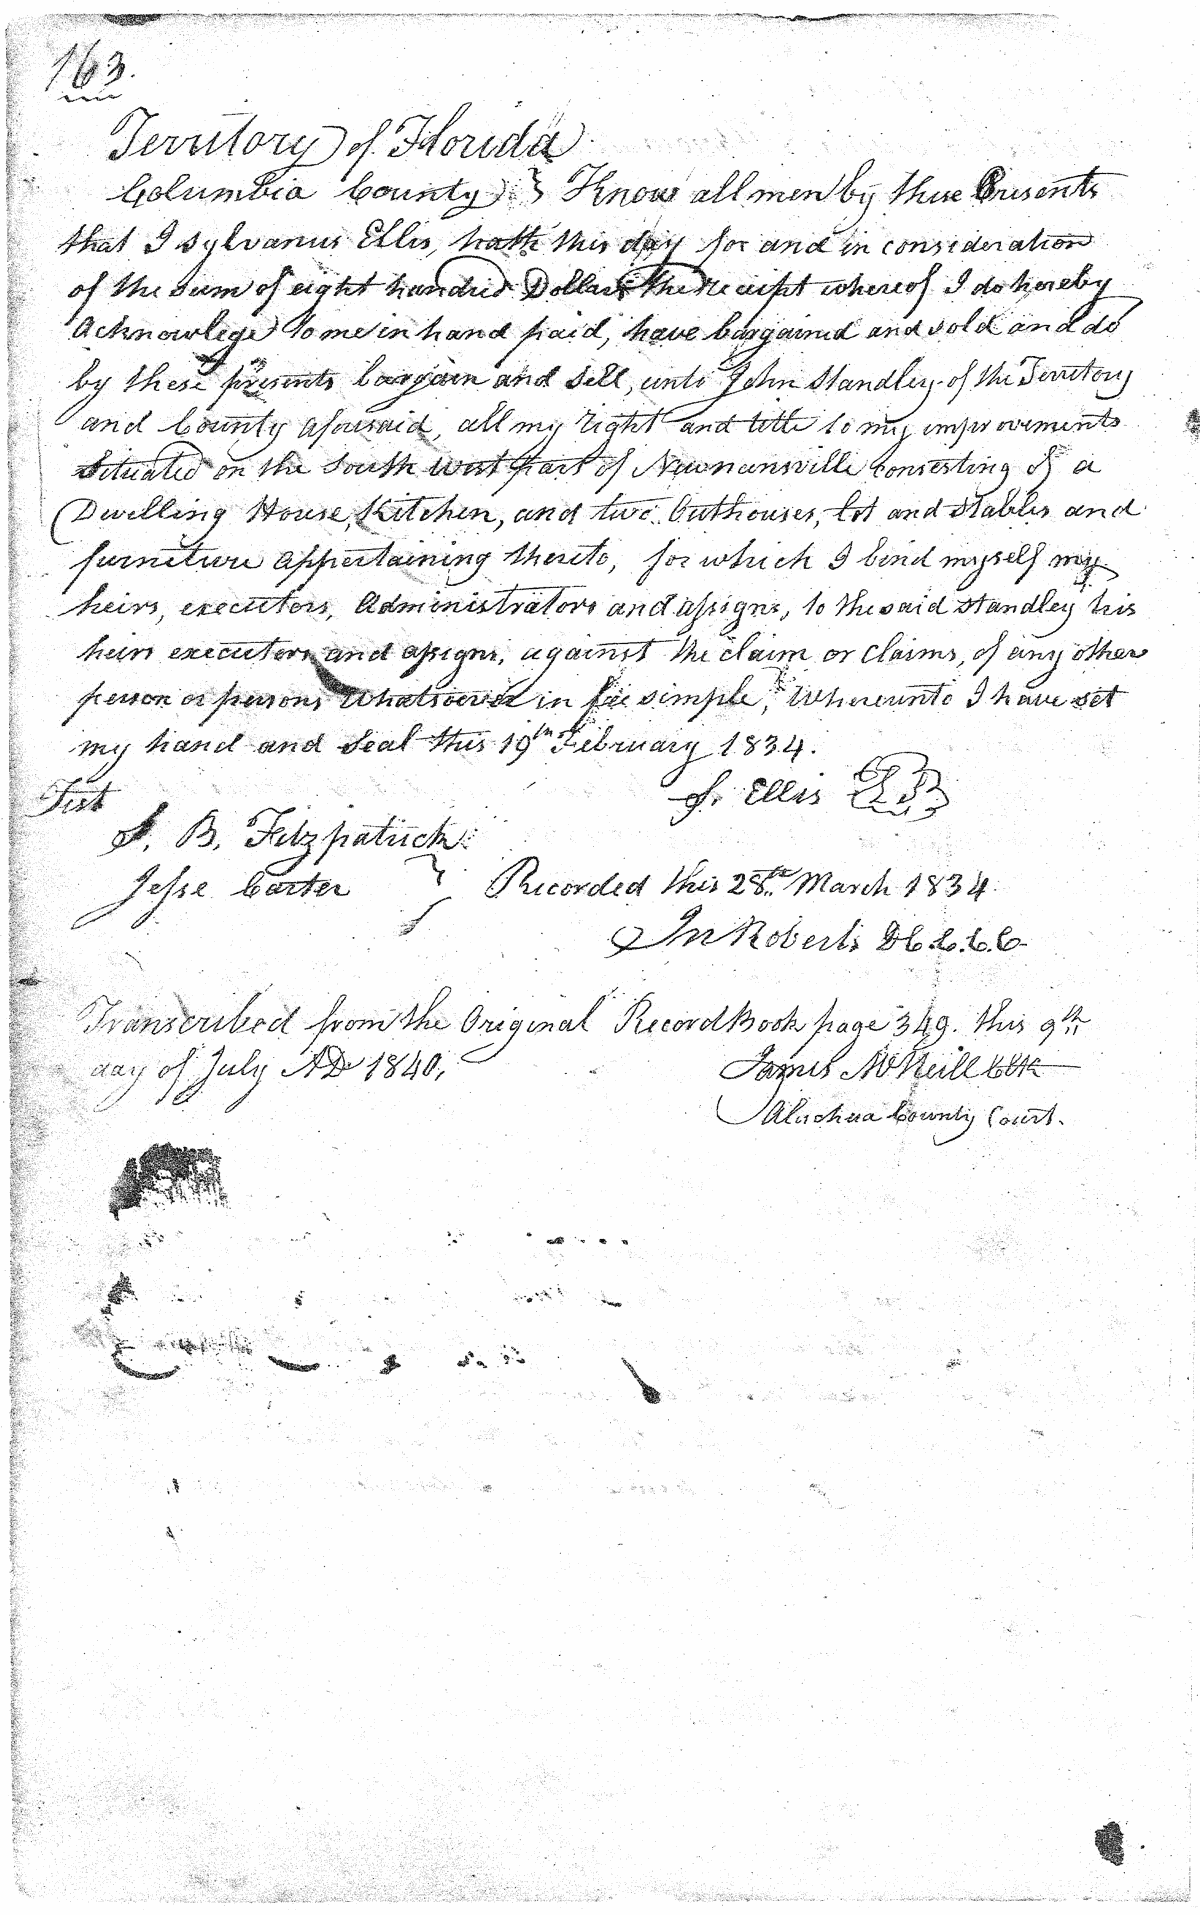 163.
Territory of Florida
Columbia County } Know all men by these Presents
that I Sylvanus Ellis, hath this day for and in consideration
of the sum of eight hundred Dollars the receipt whereof I do hereby
Acknowlege to me in hand paid, have bargained and sold and do
by these presents bargain and sell, unto John Standley of the Territory
and County aforesaid, all my right and title to my improvements
Situated on the South west part of Newnansville consisting of a
Dwelling House, Kitchen, and two Outhouses, lot and stables and
furniture appertaining thereto, for which I bind myself my
heirs, executors, Administrators and assigns, to the said Standley his
heirs executors and assigns, against the claim or claims, of any other
person or persons whatsoever in fee simple, Whereunto I have set
my hand and Seal this 19th February 1834.
Test
S. Ellis
S. B. Fitzpatrick
Jesse Carter } Recorded this 28th March 1834
Jn Roberts D C.C.C.C
Transcribed from the Original Record Book page 349. this 9th
day of July AD 1840,
James McNeill Clk
Alachua County Court.